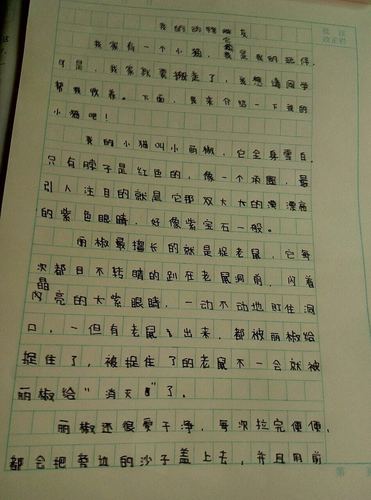 我的动物朋友
我家有一个小猫，它是我的玩伴，
可是，我家就要搬走了，我想请同学
帮我收养。下面，我来介绍一下我的
小猫吧！
我的小猫叫小丽椒，它全身雪白，
只有脖子是红色的，像一个项圈，最
引人注目的就是它那双大大的漂漂亮
的紫色眼睛，好像紫宝石一般。
丽椒最擅长的就是捉老鼠，它每
次都目不转睛的趴在老鼠洞前，闪着
晶闪亮的大紫眼睛，一动不动地盯住洞
口，一但有老鼠出来，都被丽椒给
捉住了，被捉住了的老鼠不一会就被
丽椒给“消灭”了。
丽椒还很爱干净，每次拉完便便，
都会把旁边的沙子盖上去，并且用前